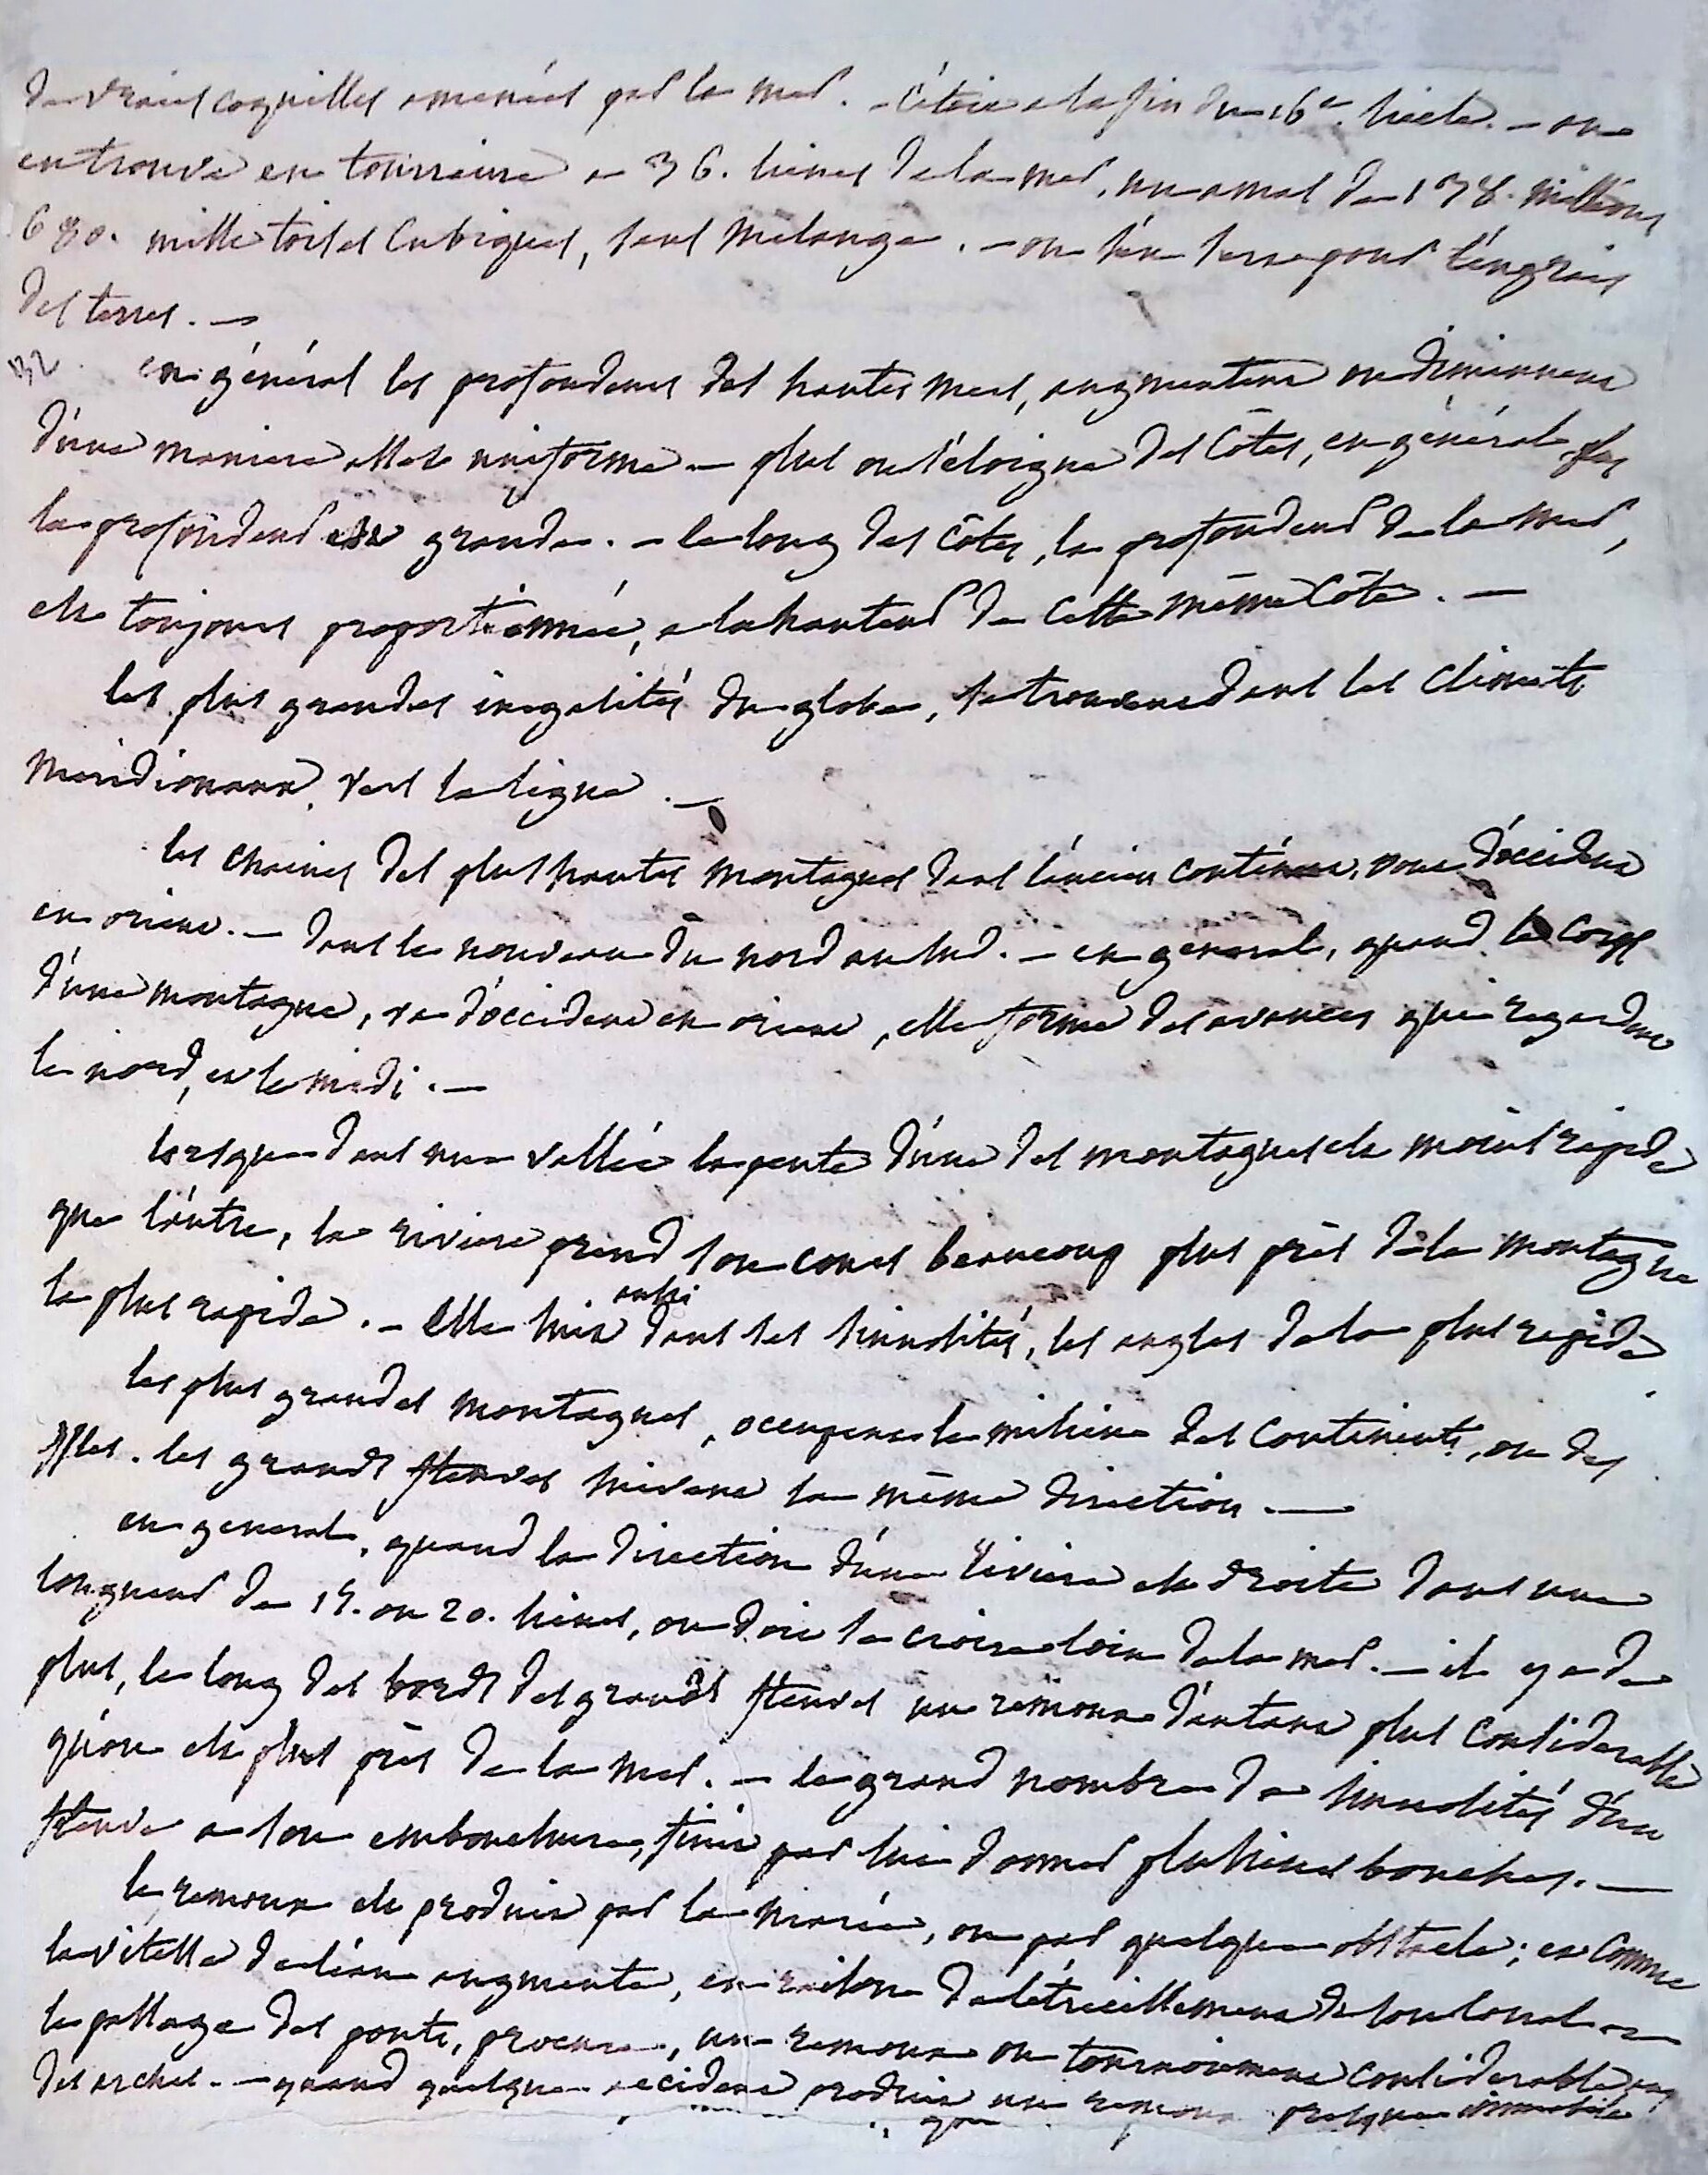 de vraies coquilles amenées par la mer. - c'étoit a la fin du 16e. siecle. - on
en trouve en tourraine a 36. lieues de la mer, un amas de 138. millions
680. mille toises cubiques, sans mélange. - on s'en sert pour l'engrais
des terres. -
32. en général les profondeurs des hautes mers, augmentent ou diminuent
d'une maniere assez uniforme - plus on s'éloigne des Côtes, en général plus
la profondeur est grande. - le long des Côtes, la profondeur de la mer,
est toujours proportionnée, a la hauteur de cette même Côte. -
les plus grandes inegalités du globe, se trouvent dans les climats
meridionaux, vers la ligne. -
les chaines des plus hautes montagnes dans l'ancien continent, vont d'occident
en orient. - dans le nouveau du nord au sud. - en general, quand le corps
d'une montagne, va d'occident en orient, elle forme des avances qui regardent
le nord, et le midi. -
lorsque dans une vallée la pente d'une des montagnes est moins rapide
que l'autre, la riviere prend son cours beaucoup plus près de la montagne
la plus rapide. - elle suit aussi dans ses sinuosités, les angles de la plus rapide
les plus grandes montagnes, occupent le milieu des continents, ou des
isles. les grands fleuves suivent la même direction. -
en general, quand la direction d'une riviere est droite dans une
longueur de 15. ou 20. lieues, on doit se croire loin de la mer. - il y a de
plus, le long des bords des grands fleuves un remoux d'autant plus considerable
qu'on est plus près de la mer. - le grand nombre de sinuosités d'un
fleuve a son embouchure, finit par lui donner plusieurs bouches. -
le remoux est produit par la marée, ou par quelque obstacle; et comme
la vitesse de l'eau augmente, en raison de l'étrecissement de son canal
le passage des ponts, procure, un remoux ou tournoiement considerable
des arches. - quand quelque accident produit un remoux presque immobile